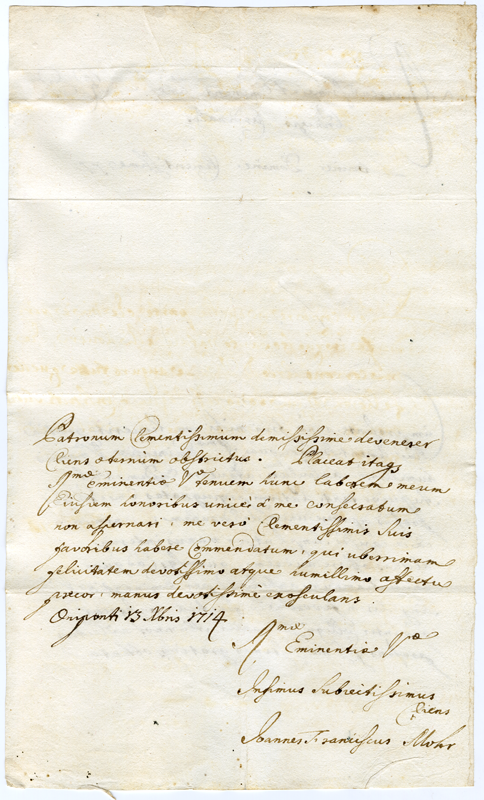 Patronum Clementissimum demississime devenerer
Cliens æternum obstrictus. Placeat itaqꝫ
Emæ Eminentiæ Væ tenuem hunc laborem meum
Ejusdem honoribus unicè à me consecratum
non aspernari, me verò Clementissimis suis
favoribus habere Commendatum, qui uberrimam
felicitatem devotissimo atque humillimo affectu
precor, manus devotissimè exosculans.
Oeniponti 13 Xbris 1714.
Emæ Eminentiæ Væ
Infimus Subiectissimus
Cliens
Joannes Franciscus Mohr